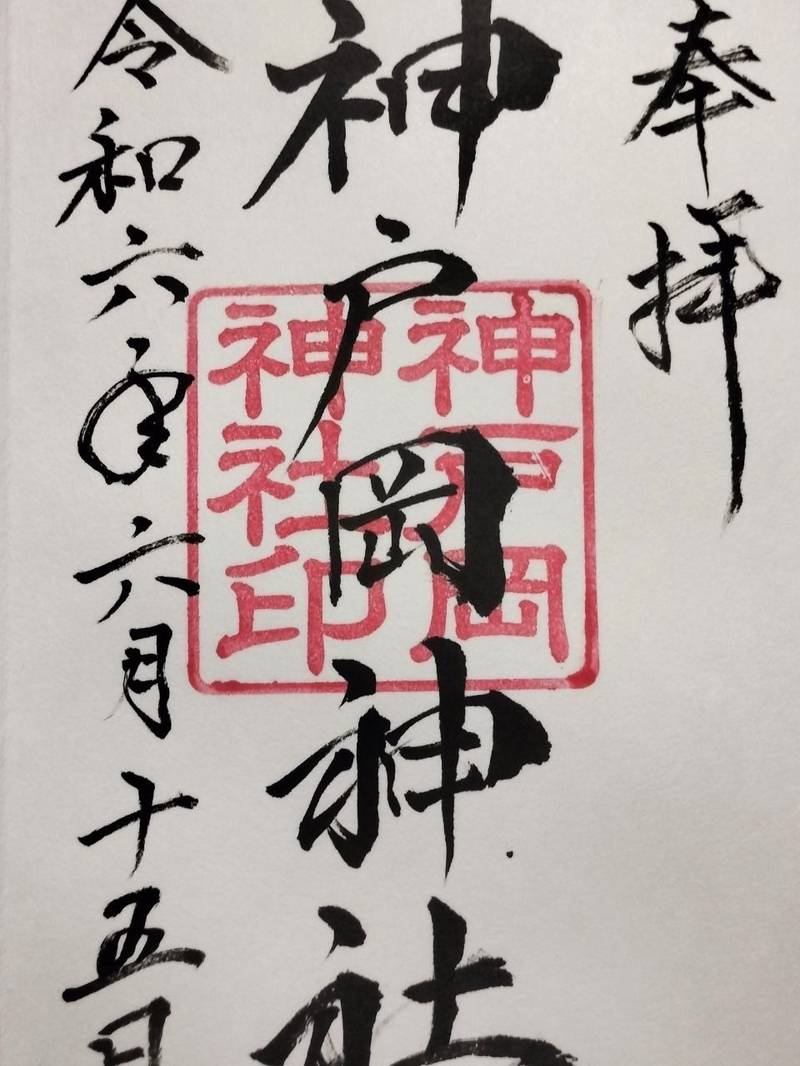 奉拝
神戸岡神社
神戸岡
神社印
令和六年六月十五日